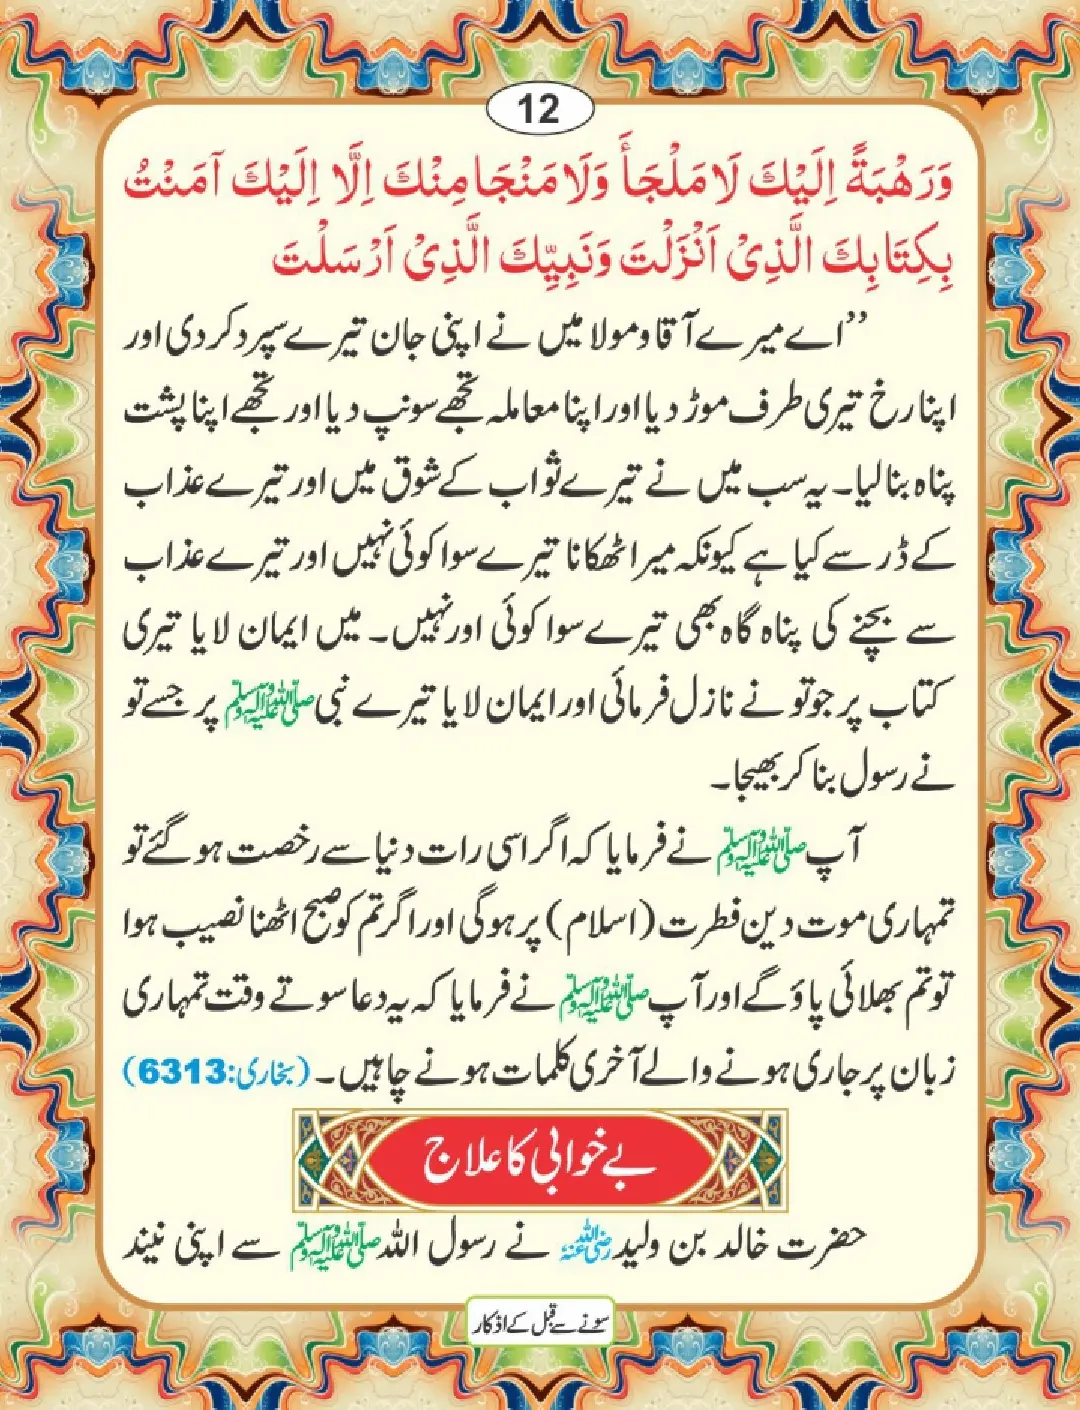 12
وَرَهْبَةً اِلَيْكَ لَا مَلْجَأَ وَلَا مَنْجَا مِنْكَ اِلَّا اِلَيْكَ آمَنْتُ
بِكِتَابِكَ الَّذِىْ اَنْزَلْتَ وَنَبِيِّكَ الَّذِىْ اَرْسَلْتَ
’’اے میرے آقا ومولا میں نے اپنی جان تیرے سپرد کردی اور
اپنا رخ تیری طرف موڑ دیا اور اپنا معاملہ تجھے سونپ دیا اور تجھے اپنا پشت
پناہ بنالیا۔ یہ سب میں نے تیرے ثواب کے شوق میں اور تیرے عذاب
کے ڈر سے کیا ہے کیونکہ میرا ٹھکانا تیرے سوا کوئی نہیں اور تیرے عذاب
سے بچنے کی پناہ گاہ بھی تیرے سوا کوئی اور نہیں۔ میں ایمان لایا تیری
کتاب پر جو تو نے نازل فرمائی اور ایمان لایا تیرے نبی ﷺ پر جسے تو
نے رسول بنا کر بھیجا۔
آپ ﷺ نے فرمایا کہ اگر اسی رات دنیا سے رخصت ہوگئے تو
تمہاری موت دین فطرت (اسلام) پر ہوگی اور اگر تم کو صبح اٹھنا نصیب ہوا
تو تم بھلائی پاؤ گے اور آپ ﷺ نے فرمایا کہ یہ دعا سوتے وقت تمہاری
زبان پر جاری ہونے والے آخری کلمات ہونے چاہیں۔ (بخاری:6313)
بے خوابی کا علاج
حضرت خالد بن ولید رضی اللہ عنہ نے رسول اللہ ﷺ سے اپنی نیند
سونے سے قبل کے اذکار